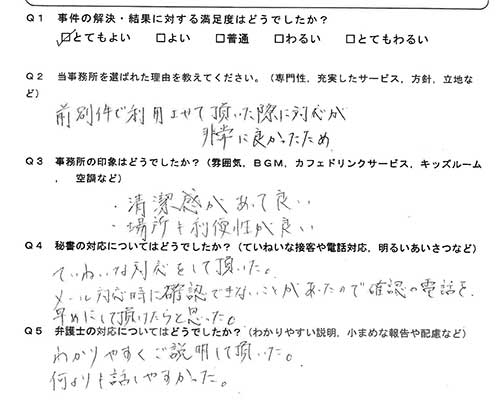 Q1 事件の解決・結果に対する満足度はどうでしたか?
☑とてもよい □よい □普通 □わるい □とてもわるい
Q2 当事務所を選ばれた理由を教えてください。(専門性,充実したサービス,方針,立地など)
前別件で利用させて頂いた際に対応が
非常に良かったため
Q3 事務所の印象はどうでしたか?(雰囲気,BGM,カフェドリンクサービス,キッズルーム
,空調など)
・清潔感があって良い
・場所も利便性が良い
Q4 秘書の対応についてはどうでしたか?(ていねいな接客や電話対応,明るいあいさつなど)
ていねいな対応をして頂いた。
メール対応時に確認できないことがあったので確認の電話を
早めにして頂けたらと思った。
Q5 弁護士の対応についてはどうでしたか?(わかりやすい説明,小まめな報告や配慮など)
わかりやすくご説明して頂いた。
何よりも話しやすかった。